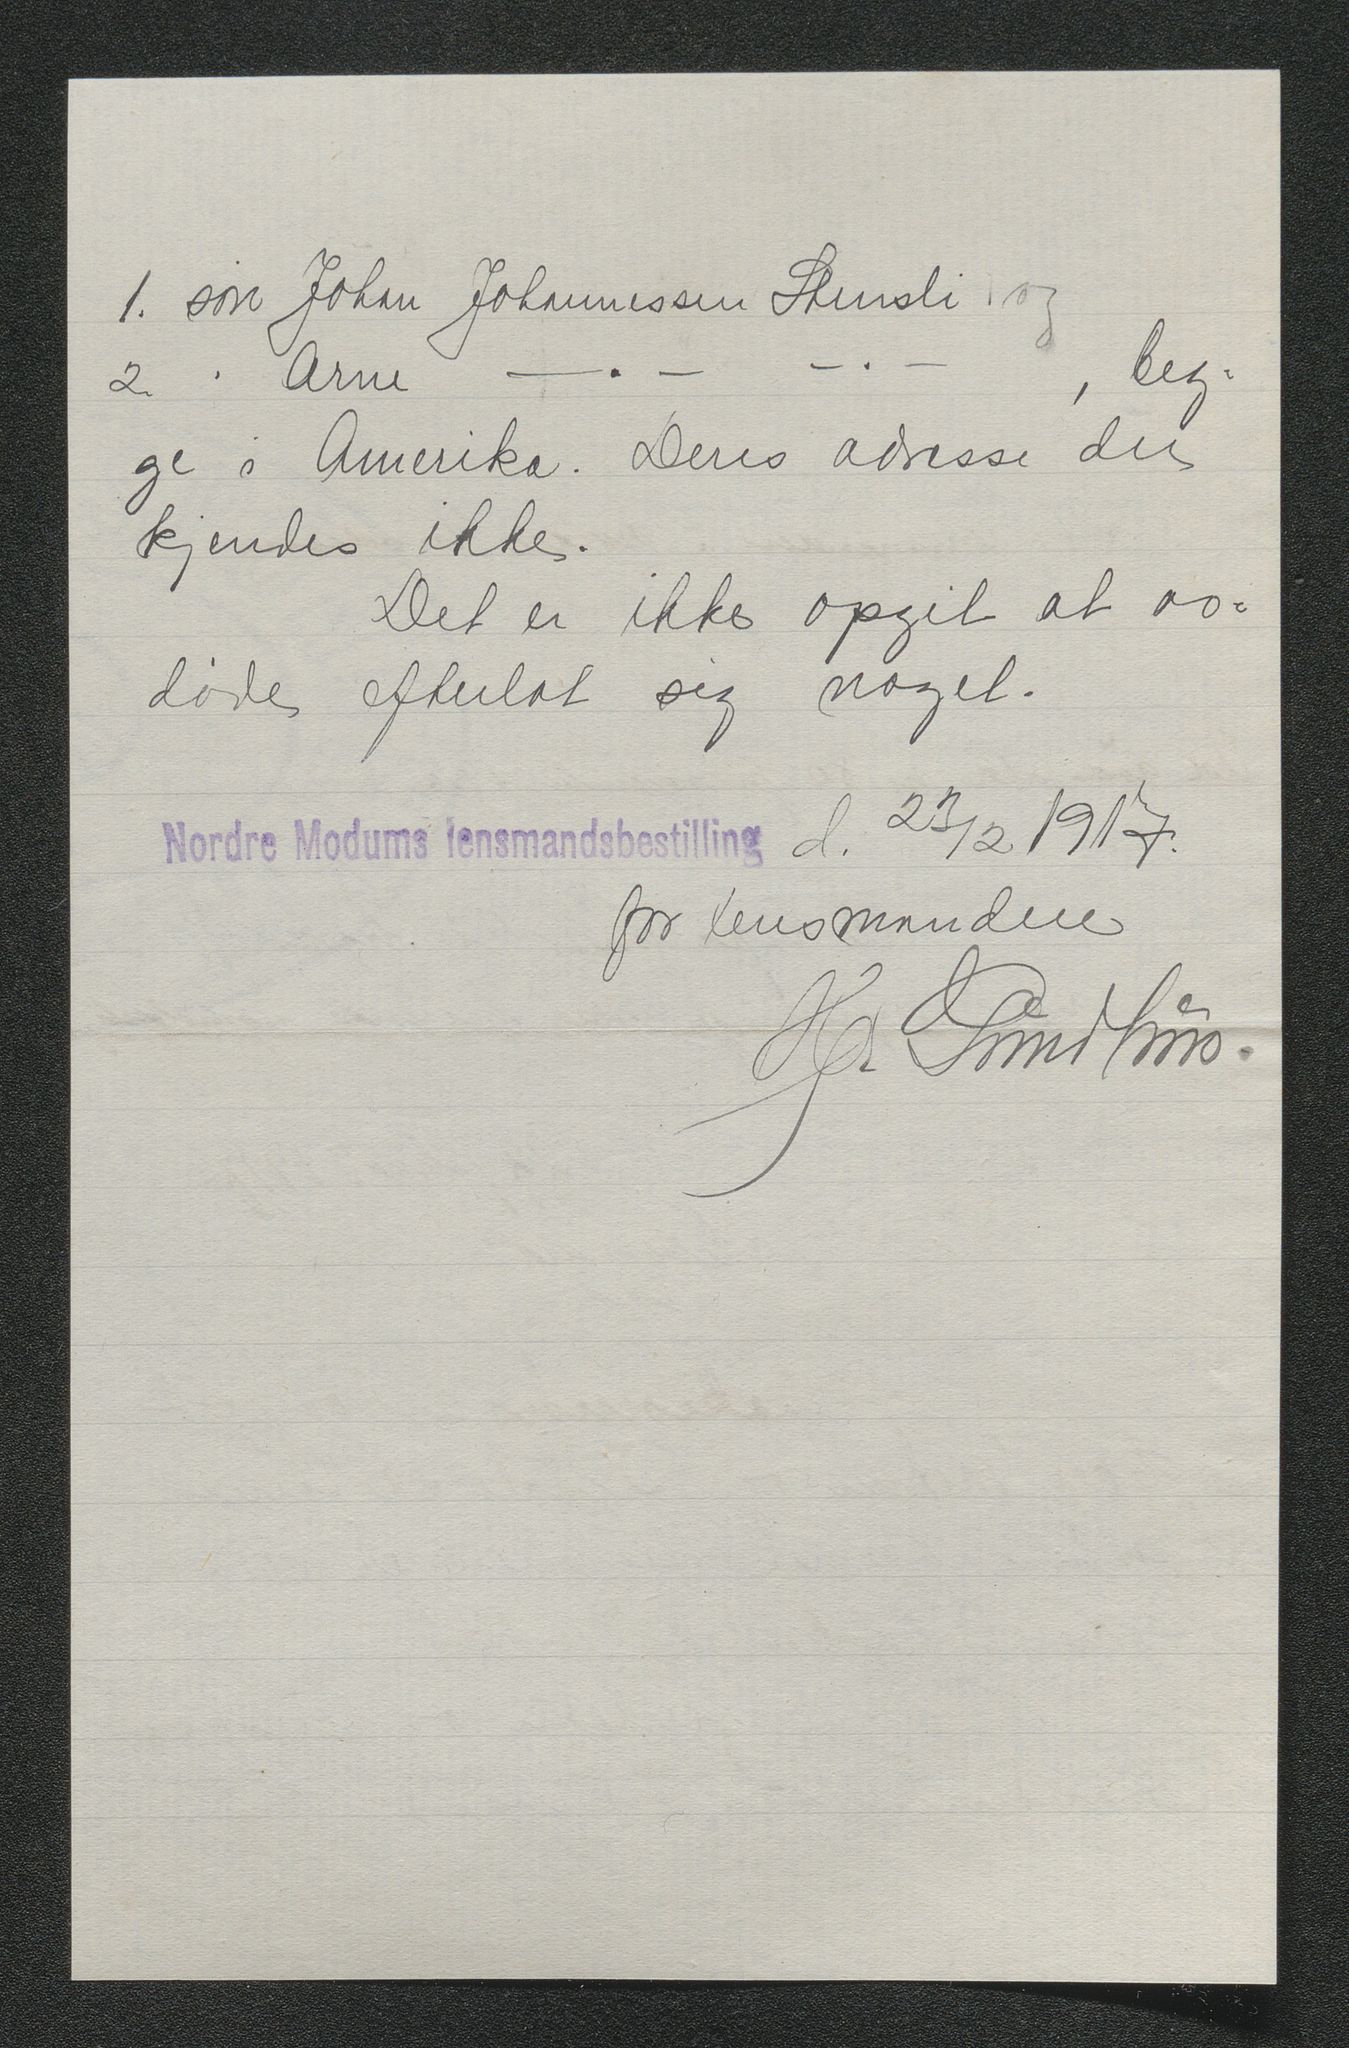 1. søn Johan Johannessen Stensli og
2. " Arne —"— —"—, beg-
ge i Amerika. Deres adresse der
kjendes ikke.
Det er ikke opgit at av-
døde efterlot sig noget.
Nordre Modums lensmandsbestilling d. 23/2 1917.
for lensmanden